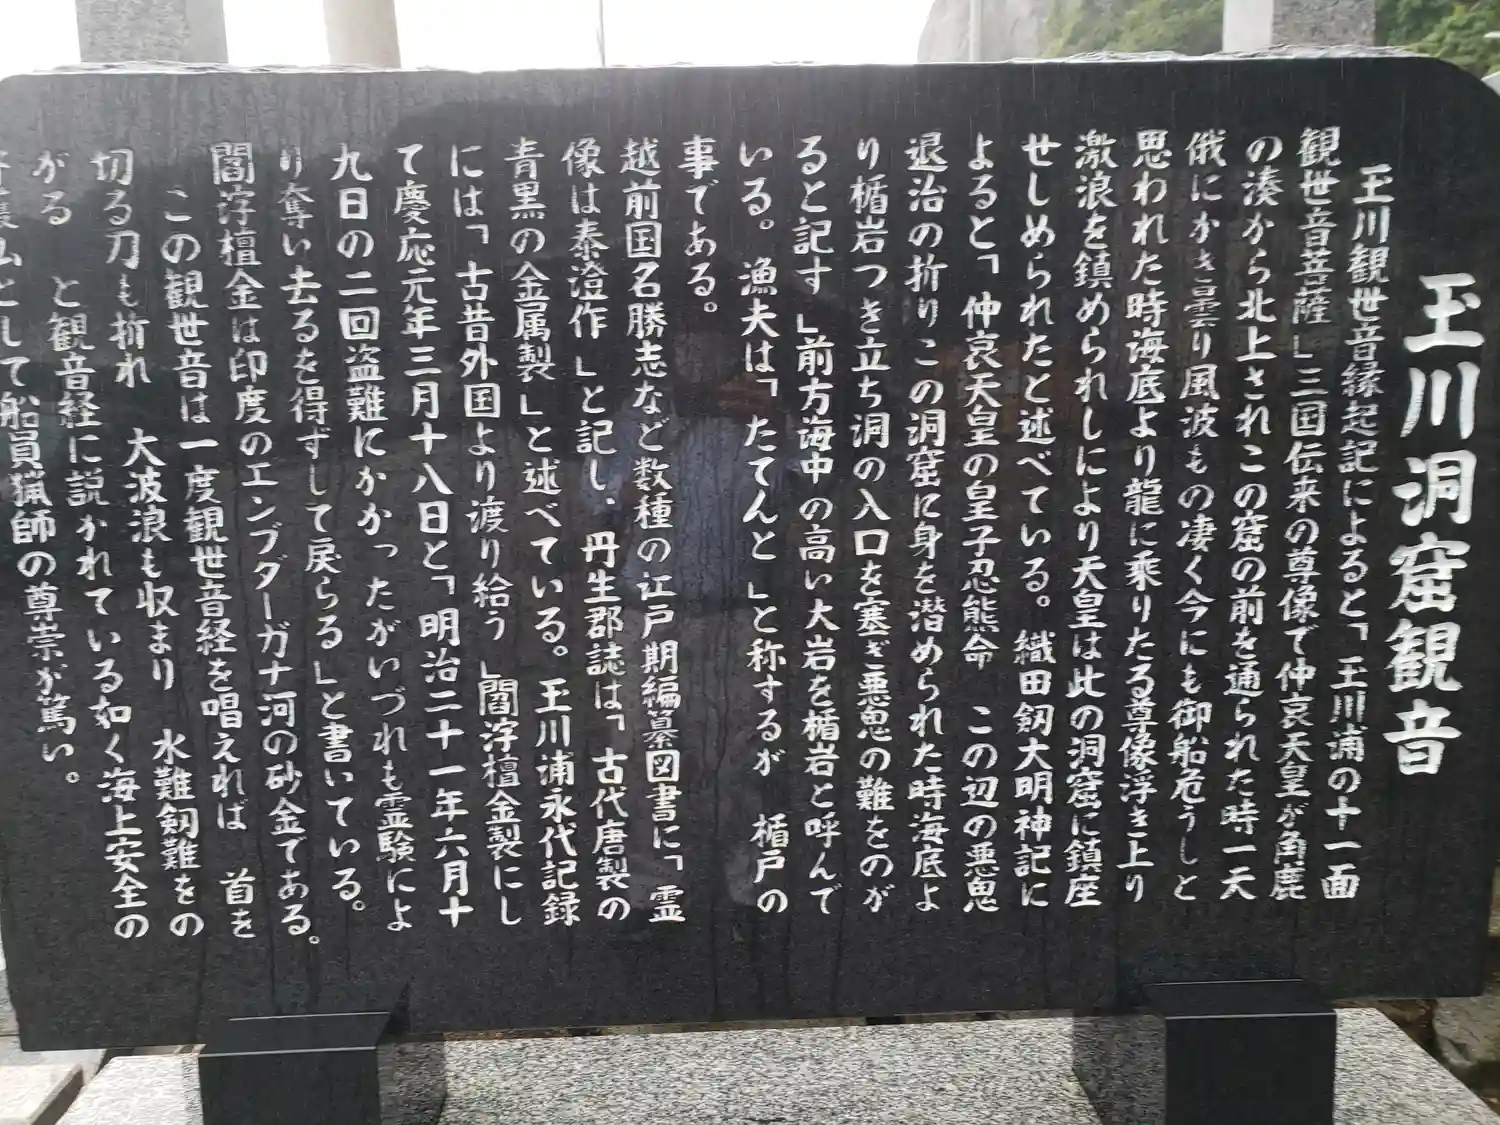 玉川洞窟観音
玉川観世音縁起記によると「玉川浦の十一面
観世音菩薩」三国伝来の尊像で仲哀天皇が角鹿
の湊から北上されこの窟の前を通られた時一天
俄にかき雲り風波もの凄く今にも御船危うしと
思われた時海底より龍に乗りたる尊像浮き上り
激浪を鎮められしにより天皇は此の洞窟に鎮座
せしめられたと述べている。織田剱大明神記に
よると「仲哀天皇の皇子忍熊命 この辺の悪鬼
退治の折りこの洞窟に身を潜められた時海底よ
り楯岩つき立ち洞の入口を塞ぎ悪鬼の難をのが
ると記す」前方海中の高い大岩を楯岩と呼んで
いる。漁夫は「たてんと」と称するが 楯戸の
事である。
越前国名勝志など数種の江戸期編纂図書に「霊
像は泰澄作」と記し、丹生郡誌は「古代唐製の
青黒の金属製」と述べている。玉川浦永代記録
には「古昔外国より渡り給う」閻浮檀金製にし
て慶応元年三月十八日と「明治二十一年六月十
九日の二回盗難にかかったがいづれも霊験によ
り奪い去るを得ずして戻らる」と書いている。
閻浮檀金は印度のエンブターガナ河の砂金である。
この観世音は一度観世音経を唱えれば 首を
切る刀も折れ 大波浪も収まり 水難剱難をの
がる と観音経に説かれている如く海上安全の
として船員猟師の尊崇が篤い。